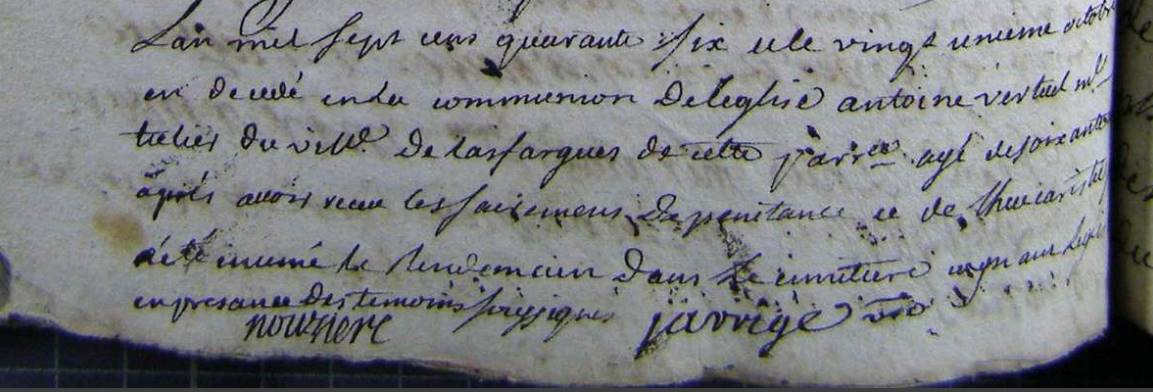 Lan mil sept cens quarante six et le vingt unieme octobre
est decedé en la communion de leglise antoine verlud
du vill. de lasfargues de cette parr.e agé de soixante
après avoir receu les sacremens de penitance et de
a été inumé le lendemein dans le cimitiere
en presance des temoins soussignes
nouziere jarrige